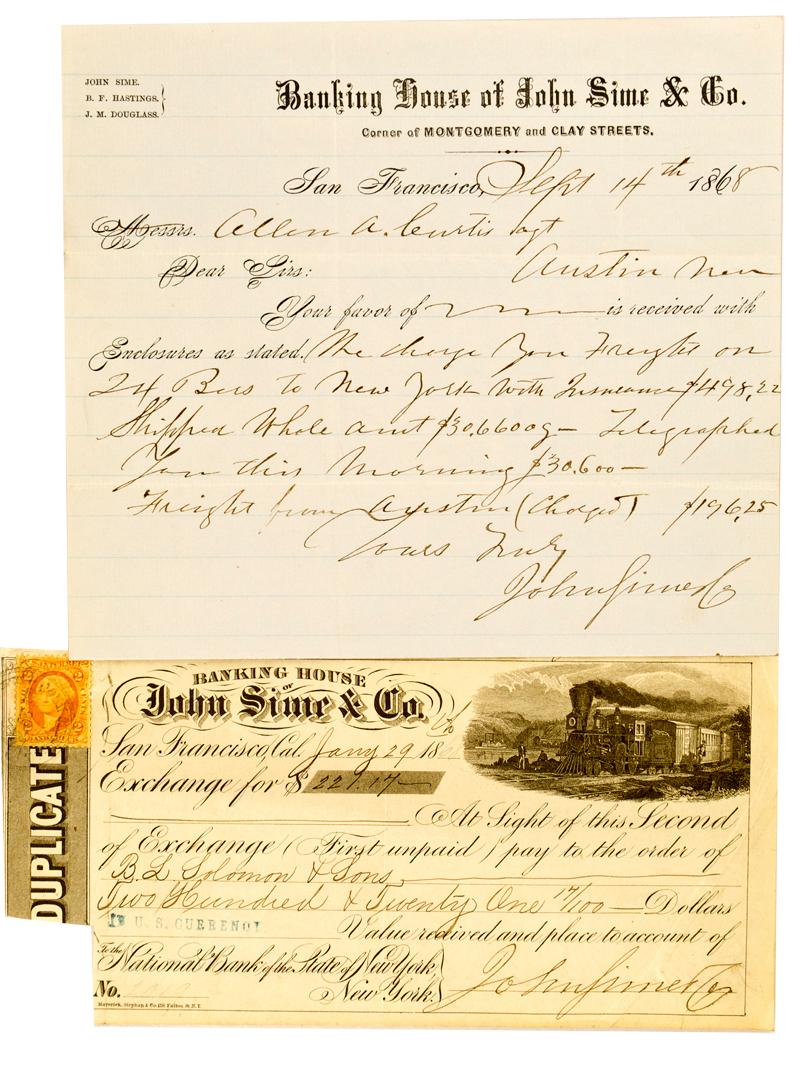 JOHN SIME.
B. F. HASTINGS.
J. M. DOUGLASS.
Banking House of John Sime & Co.
Corner of MONTGOMERY and CLAY STREETS.
San Francisco, Sept 14th 1868
Messrs. Allen A. Curtis agt
Austin Nev
Dear Sirs:
Your favor of is received with
Enclosures as stated. We charge you Freight on
24 Bars to New York with Insurance $498,22
Shipped Whole amt Telegraphed
You this Morning $30.600—
Freight from Austin (Charged) $196,25
Yours Truly
John Sime & Co
BANKING HOUSE
OF
John Sime & Co.
San Francisco, Cal. Jany 29 186
Exchange for $ 221.17
At Sight of this Second
of Exchange (First unpaid) pay to the order of
B. L. Solomon & Sons
Two Hundred & Twenty One 17/100 — Dollars
IN U. S. CURRENCY
Value received and place to account of
To the National Bank of the State of New York,
New York.
John Sime & Co
No.
Maverick, Stephan & Co. 156 Fulton St. N.Y.
DUPLICATE